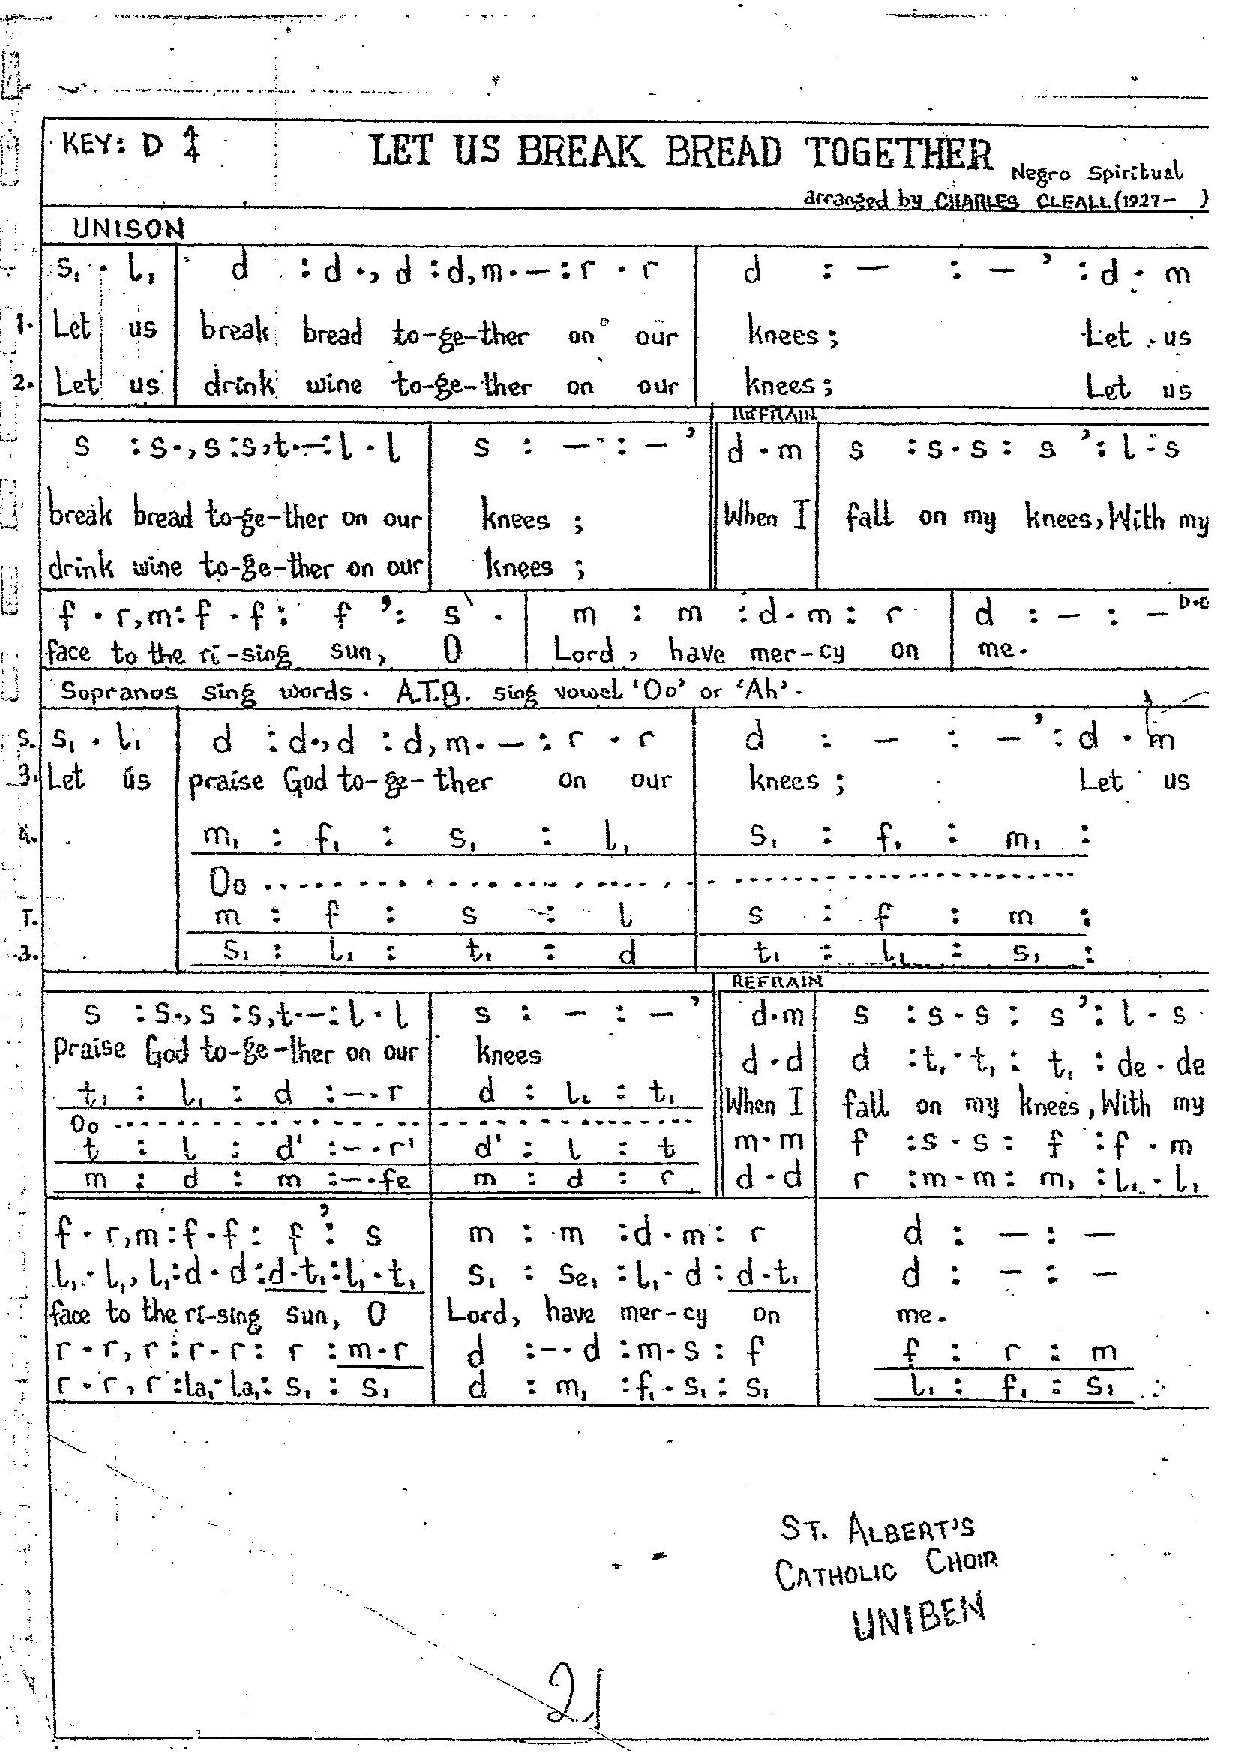 KEY: D
LET US BREAK BREAD TOGETHER
Negro Spiritual
arranged by CHARLES CLEALL (1927- )
UNISON
s₁ . l₁ | d : d ., d : d,m . — : r . r | d : — : — ’ : d . m
1. Let us break bread to-ge-ther on our knees; Let us
2. Let us drink wine to-ge-ther on our knees; Let us
REFRAIN
s : s ., s : s,t . — : l . l | s : — : — ’ || d . m | s : s . s : s ’ : l . s
break bread to-ge-ther on our knees ; When I fall on my knees, With my
drink wine to-ge-ther on our knees ;
f . r,m : f . f : f ’ : s . | m : m : d . m : r | d : — : — D.C
face to the ri-sing sun, O Lord, have mer-cy on me.
Sopranos sing words. A.T.B. sing vowel 'Oo' or 'Ah'.
S. s₁ . l₁ | d : d ., d : d,m . — : r . r | d : — : — ’ : d . m
3. Let us praise God to-ge-ther on our knees ; Let us
m₁ : f₁ : s₁ : l₁ | s₁ : f₁ : m₁ :
Oo
T. m : f : s : l | s : f : m :
s₁ : l₁ : t₁ : d | t₁ : l₁ : s₁ :
REFRAIN
s : s ., s : s,t . — : l . l | s : — : — ’ || d . m | s : s . s : s ’ : l . s
Praise God to-ge-ther on our knees
d . d | d : t₁ . t₁ : t₁ : de . de
t₁ : l₁ : d : — . r | d : l₁ : t₁
When I fall on my knees, With my
Oo
t : l : d' : — . r' | d' : l : t || m . m | f : s . s : f : f . m
m : d : m : — . fe | m : d : r || d . d | r : m . m : m₁ : l₁ . l₁
f . r,m : f . f : f ’ : s | m : m : d . m : r | d : — : —
l₁ . l₁, l₁ : d . d : d . t₁ : l₁ . t₁ | s₁ : se₁ : l₁ . d : d . t₁ | d : — : —
face to the ri-sing sun, O Lord, have mer-cy on me.
r . r, r : r . r : r : m . r | d : — . d : m . s : f | f : r : m
r . r, r : la₁ . la₁ : s₁ : s₁ | d : m₁ : f₁ . s₁ : s₁ | l₁ : f₁ : s₁
ST. ALBERT'S
CATHOLIC CHOIR
UNIBEN
21